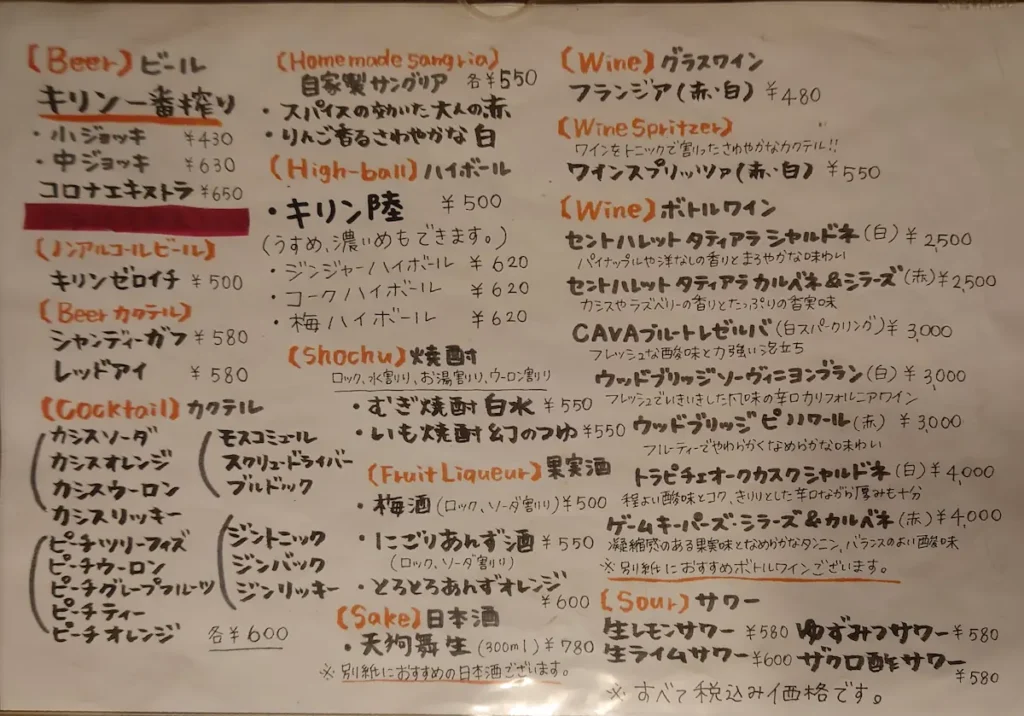 (Beer) ビール
キリン一番搾り
・小ジョッキ ¥430
・中ジョッキ ¥630
コロナエキストラ ¥650
(ノンアルコールビール)
キリンゼロイチ ¥500
(Beer カクテル)
シャンディーガフ ¥580
レッドアイ ¥580
(Cocktail) カクテル
カシスソーダ
カシスオレンジ
カシスウーロン
カシスリッキー
ピーチツリーフィズ
ピーチウーロン
ピーチグレープフルーツ
ピーチティー
ピーチオレンジ
モスコミュール
スクリュードライバー
ブルドック
ジントニック
ジンバック
ジンリッキー
各¥600
(Homemade sangria)
自家製サングリア 各¥550
・スパイスの効いた大人の赤
・りんご香るさわやかな白
(High-ball) ハイボール
・キリン陸 ¥500
(うすめ、濃いめもできます。)
・ジンジャーハイボール ¥620
・コークハイボール ¥620
・梅ハイボール ¥620
(Shochu) 焼酎
ロック、水割り、お湯割り、ウーロン割り
・むぎ焼酎 白水 ¥550
・いも焼酎 幻のつゆ ¥550
(Fruit Liqueur) 果実酒
・梅酒(ロック、ソーダ割り) ¥500
・にごりあんず酒 ¥550
(ロック、ソーダ割り)
・とろとろあんずオレンジ
¥600
(Sake) 日本酒
・天狗舞 生(300ml) ¥780
※別紙におすすめの日本酒ございます。
(Wine) グラスワイン
フランジア(赤・白) ¥480
(Wine Spritzer)
ワインをトニックで割ったさわやかなカクテル!!
ワインスプリッツァ(赤・白) ¥550
(Wine) ボトルワイン
セントハレット タティアラ シャルドネ(白) ¥2,500
パイナップルや洋なしの香りとまろやかな味わい
セントハレット タティアラ カルベネ&シラーズ(赤) ¥2,500
カシスやラズベリーの香りとたっぷりの香実味
CAVAブルートレゼルバ(白スパークリング) ¥3,000
フレッシュな酸味と力強い泡立ち
ウッドブリッジソーヴィニヨンブラン(白) ¥3,000
フレッシュでいきいきした風味の辛口カリフォルニアワイン
ウッドブリッジ ピノノワール(赤) ¥3,000
フルーティーでやわらかくなめらかな味わい
トラピチェオークカスクシャルドネ(白) ¥4,000
程よい酸味とコク、きりりとした辛口ながら厚みも十分
ゲームキーパーズ・シラーズ&カルベネ(赤) ¥4,000
凝縮感のある果実味となめらかなタンニン、バランスのよい酸味
※別紙におすすめボトルワインございます。
(Sour) サワー
生レモンサワー ¥580 ゆずみつサワー ¥580
生ライムサワー ¥600 ザクロ酢サワー
¥580
※すべて税込み価格です。